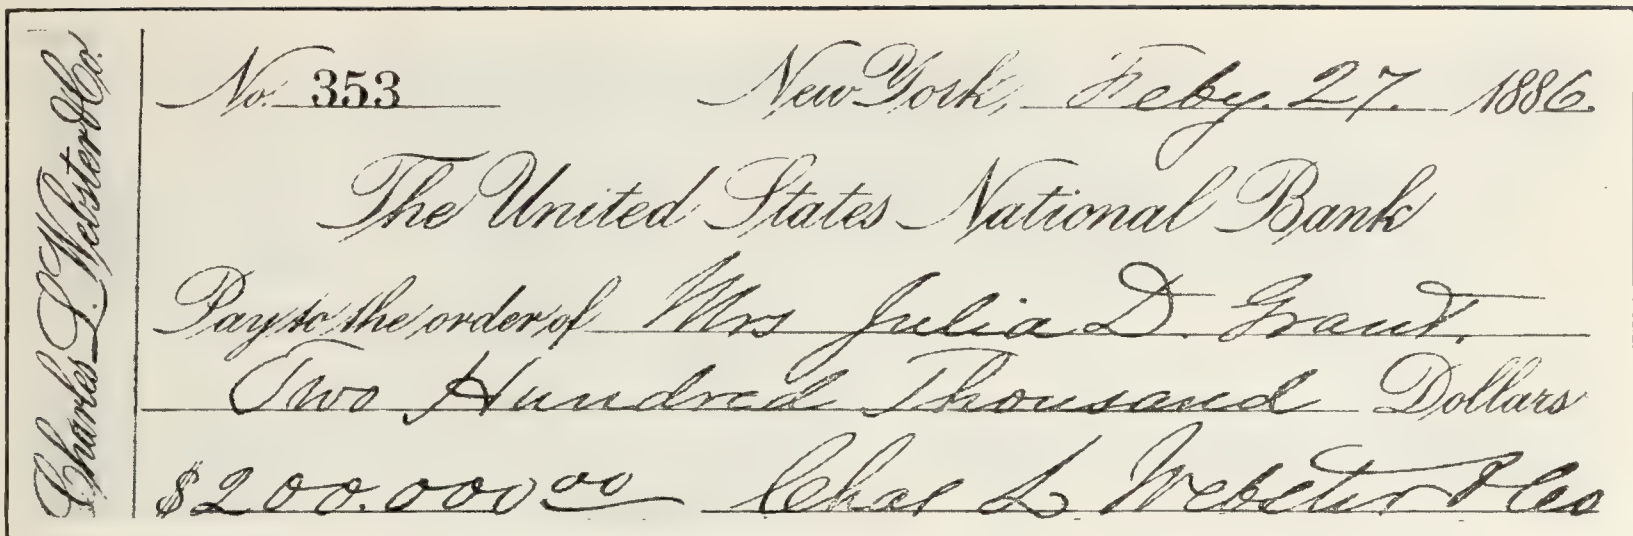 Charles L. Webster & Co.
No. 353 New York, Feby. 27. 1886.
The United States National Bank
Pay to the order of Mrs Julia D. Grant.
Two Hundred Thousand Dollars
$200.000 00 Chas L. Webster & Co